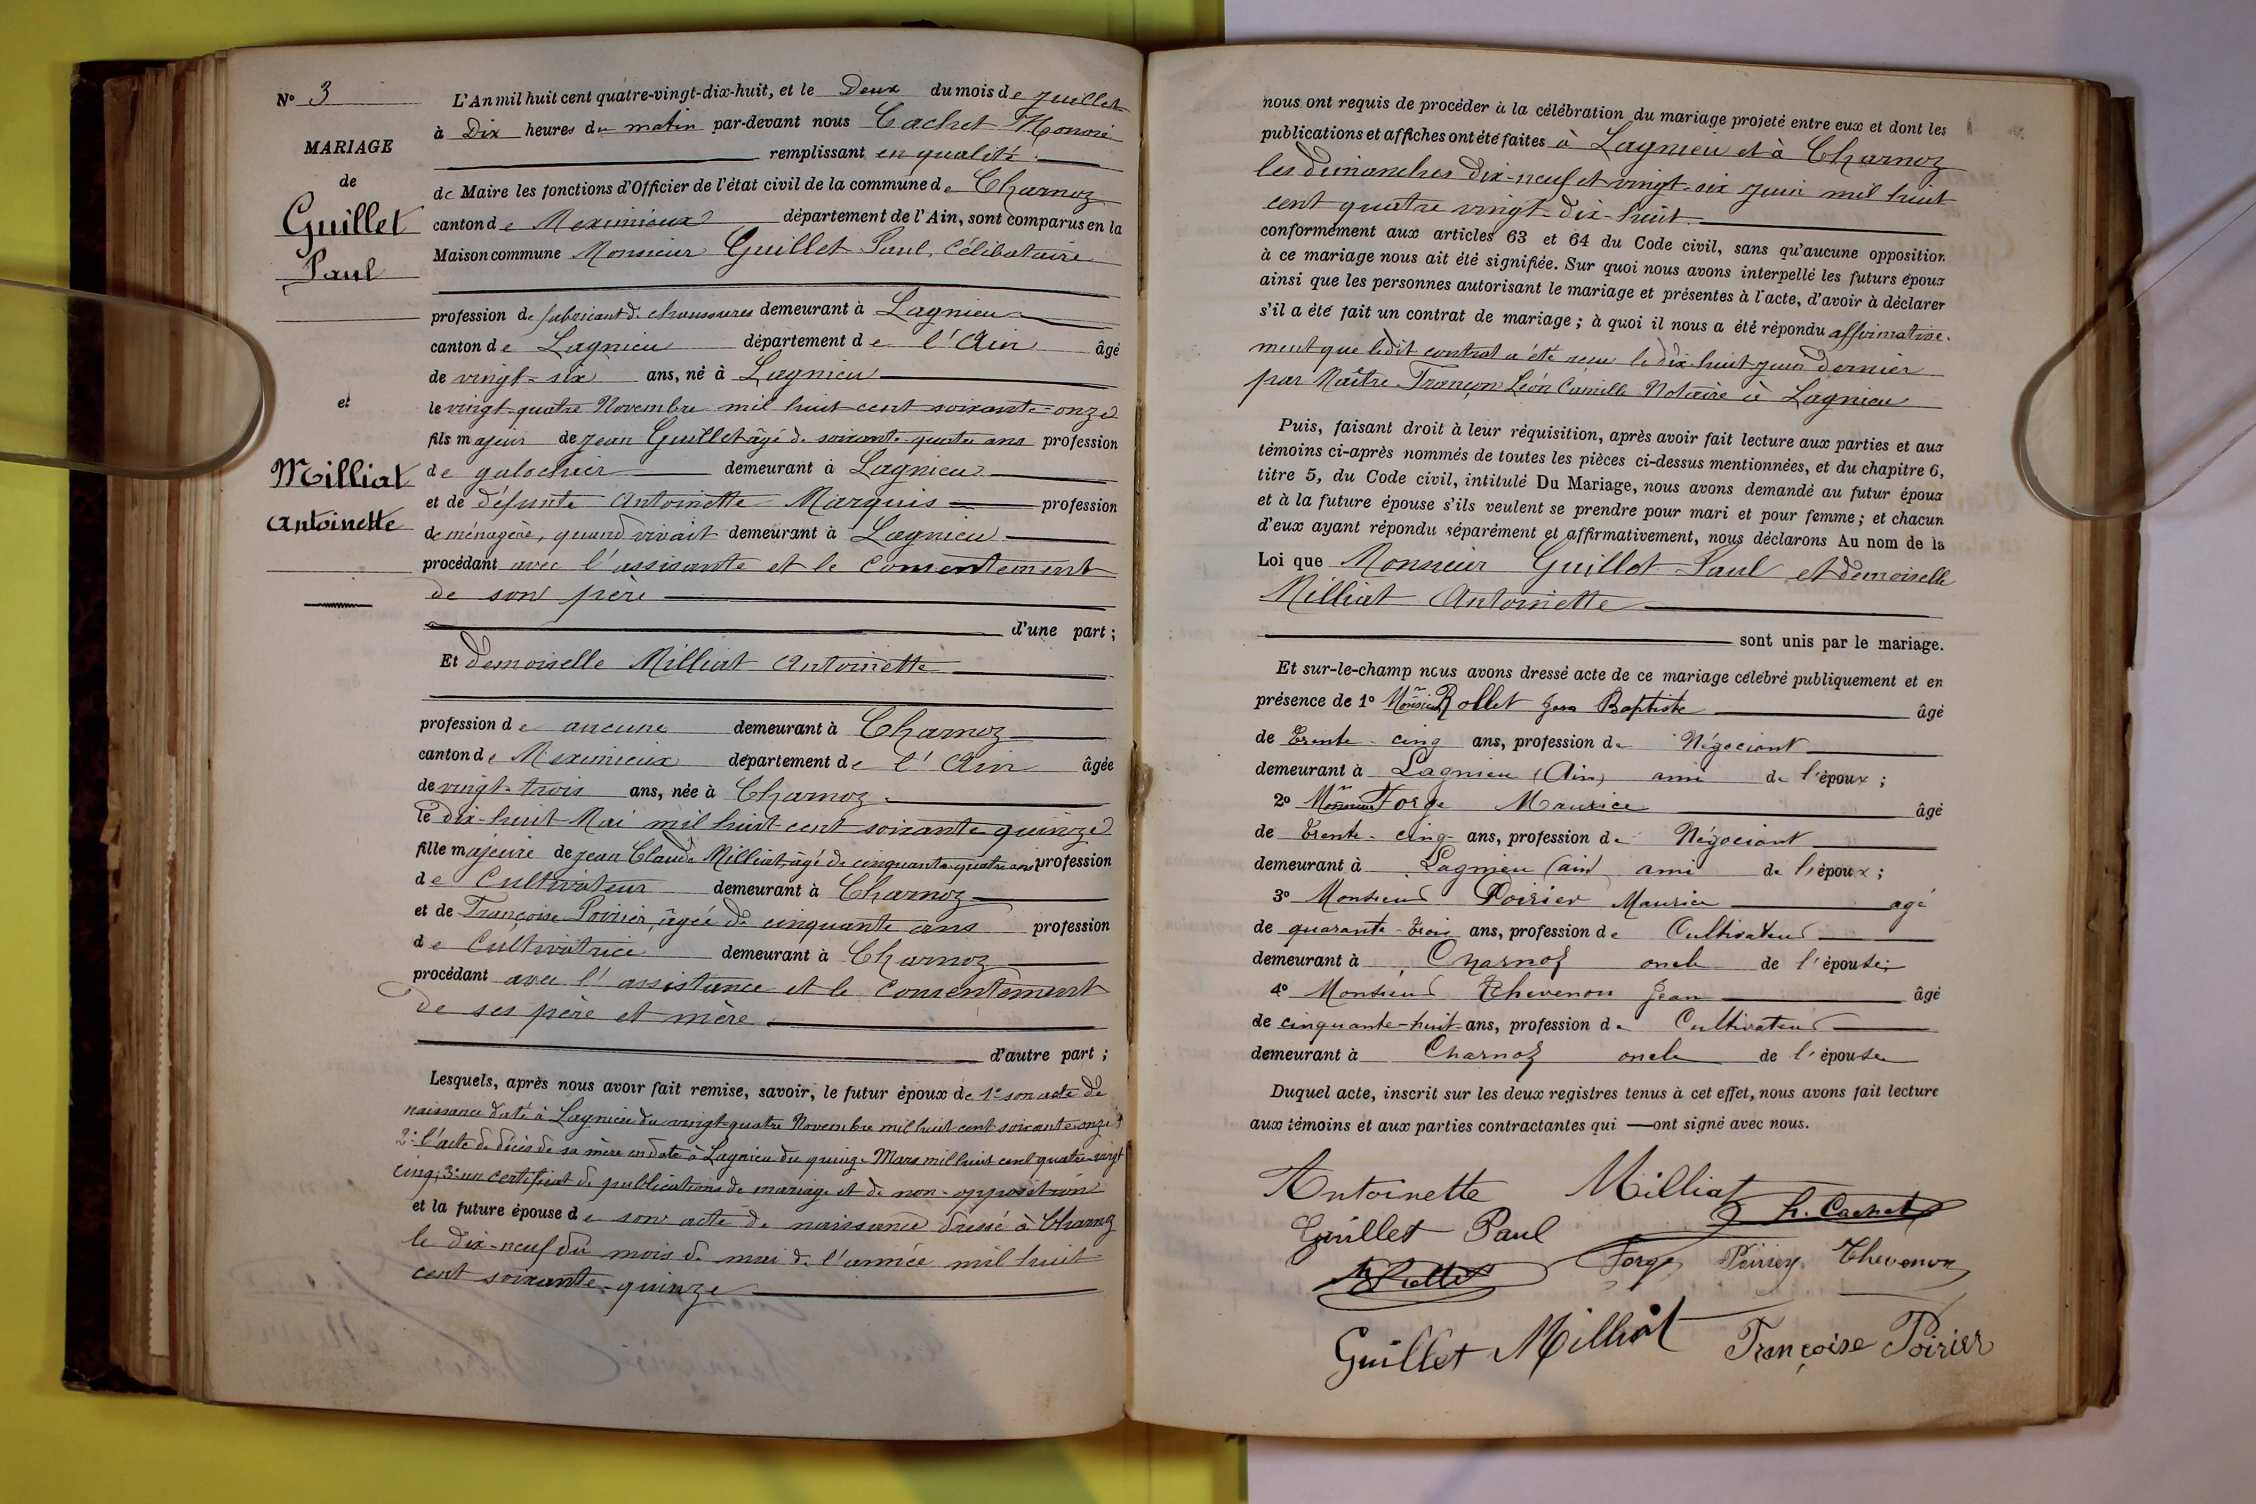 N° 3
MARIAGE
de
Guillet
Paul
et
Milliat
Antoinette
L'An mil huit cent quatre-vingt-dix-huit, et le Deux du mois de Juillet
à Dix heures du matin par-devant nous Cachet Honoré
remplissant en qualité
de Maire les fonctions d'Officier de l'état civil de la commune de Charnoz
canton de Meximieux département de l'Ain, sont comparus en la
Maison commune Monsieur Guillet Paul, Célibataire
profession de fabricant de chaussures demeurant à Lagnieu
canton de Lagnieu département de l'Ain âgé
de vingt-six ans, né à Lagnieu
le vingt-quatre Novembre mil huit cent soixante-onze
fils majeur de Jean Guillet âgé de soixante-quatre ans profession
de galochier demeurant à Lagnieu
et de défunte Antoinette Marquis profession
de ménagère, quand vivait demeurant à Lagnieu
procédant avec l'assisante et le consentement
de son père
d'une part ;
Et demoiselle Milliat Antoinette
profession de aucune demeurant à Charnoz
canton de Meximieux département de l'Ain âgée
de vingt-trois ans, née à Charnoz
le dix-huit Mai mil huit cent soixante quinze
fille majeure de Jean Claude Milliat, âgé de cinquante-quatre ans profession
de Cultivateur demeurant à Charnoz
et de Françoise Poirier, âgée de cinquante ans profession
de Cultivatrice demeurant à Charnoz
procédant avec l'assistance et le consentement
de ses père et mère
d'autre part ;
Lesquels, après nous avoir fait remise, savoir, le futur époux de 1° son acte de
naissance daté à Lagnieu du vingt-quatre Novembre mil huit cent soixante-onze;
2° l'acte de décès de sa mère en date à Lagnieu du quinze Mars mil huit cent quatre-vingt
cinq; 3° un certificat de publications de mariage et de non-opposition
et la future épouse de son acte de naissance dressé à Charnoz
le dix-neuf du mois de mai de l'année mil huit
cent soixante-quinze
nous ont requis de procéder à la célébration du mariage projeté entre eux et dont les
publications et affiches ont été faites à Lagnieu et à Charnoz
les dimanches dix-neuf et vingt-six juin mil huit
cent quatre vingt-dix-huit
conformément aux articles 63 et 64 du Code civil, sans qu'aucune opposition
à ce mariage nous ait été signifiée. Sur quoi nous avons interpellé les futurs époux
ainsi que les personnes autorisant le mariage et présentes à l'acte, d'avoir à déclarer
s'il a été fait un contrat de mariage ; à quoi il nous a été répondu affirmative-
ment que ledit contrat a été reçu le dix-huit juin dernier
par Maître Françon Léon Camille Notaire à Lagnieu
Puis, faisant droit à leur réquisition, après avoir fait lecture aux parties et aux
témoins ci-après nommés de toutes les pièces ci-dessus mentionnées, et du chapitre 6,
titre 5, du Code civil, intitulé Du Mariage, nous avons demandé au futur époux
et à la future épouse s'ils veulent se prendre pour mari et pour femme ; et chacun
d'eux ayant répondu séparément et affirmativement, nous déclarons Au nom de la
Loi que Monsieur Guillet Paul et demoiselle
Milliat Antoinette
sont unis par le mariage.
Et sur-le-champ nous avons dressé acte de ce mariage célébré publiquement et en
présence de 1° Monsieur Rollet Jean Baptiste âgé
de Trente-cinq ans, profession de Négociant
demeurant à Lagnieu (Ain) ami de l'époux ;
2° Monsieur Forge Maurice âgé
de Trente-cinq ans, profession de Négociant
demeurant à Lagnieu (ain) ami de l'époux ;
3° Monsieur Poirier Maurice agé
de quarante-trois ans, profession de Cultivateur
demeurant à Charnoz oncle de l'épouse;
4° Monsieur Thevenon Jean âgé
de cinquante-huit ans, profession de Cultivateur
demeurant à Charnoz oncle de l'épouse
Duquel acte, inscrit sur les deux registres tenus à cet effet, nous avons fait lecture
aux témoins et aux parties contractantes qui — ont signé avec nous.
Antoinette Milliat
h. Cachet
Guillet Paul
Rollet Forge Poirier Thevenon
Guillet Milliat Françoise Poirier